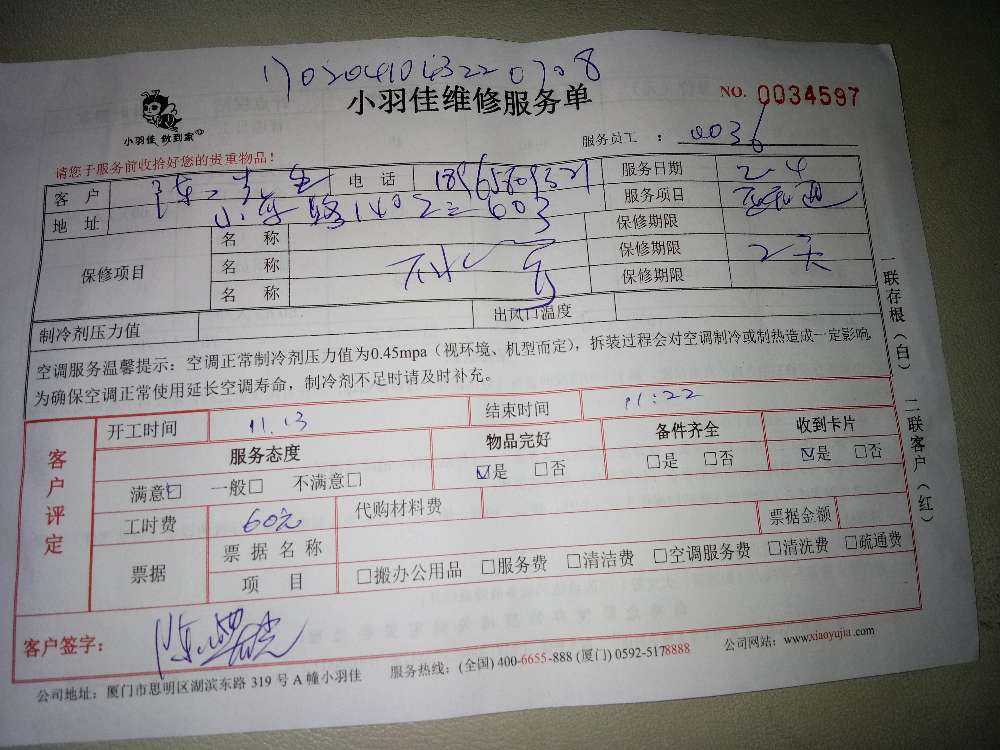 小羽佳维修服务单
NO. 0034597
小羽佳 做到家
服务员工 ： 0036
请您于服务前收拾好您的贵重物品！
客 户 陈 先生 电 话 服务日期 2-4
地 址 服务项目
保修项目 名 称 保修期限
名 称 保修期限 2天
名 称 保修期限
制冷剂压力值 出风口温度
空调服务温馨提示：空调正常制冷剂压力值为0.45mpa（视环境、机型而定），拆装过程会对空调制冷或制热造成一定影响，
为确保空调正常使用延长空调寿命，制冷剂不足时请及时补充。
客户评定 开工时间 11.13 结束时间 11:22
服务态度 物品完好 备件齐全 收到卡片
满意☑ 一般□ 不满意□ ☑是 □否 □是 □否 ☑是 □否
工时费 60元 代购材料费 票据金额
票据 票 据 名 称
项 目 □搬办公用品 □服务费 □清洁费 □空调服务费 □清洗费 □疏通费
客户签字：
公司地址：厦门市思明区湖滨东路 319 号 A 幢小羽佳 服务热线：(全国) 400-6655-888 (厦门) 0592-5178888 公司网站：www.xiaoyujia.com
一联存根（白） 二联客户（红）